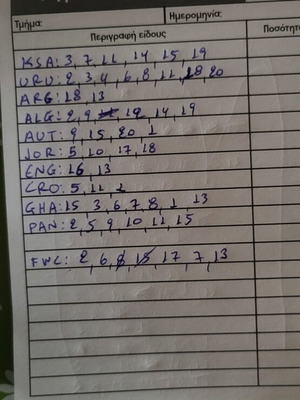 Τμήμα: Ημερομηνία:
Περιγραφή είδους Ποσότητ
KSA: 3, 7, 11, 14, 15, 19
URU: 2, 3, 4, 6, 8, 11, 18, 20
ARG: 18, 13
ALG: 2, 9, 12, 14, 19
AUT: 9, 15, 20, 1
JOR: 5, 10, 17, 18
ENG: 16, 13
CRO: 5, 11, 2
GHA: 15 3, 6, 7, 8, 1, 13
PAN: 2, 5, 9, 10, 11, 15
FWC: 2, 6, 8, 15, 17, 7, 13